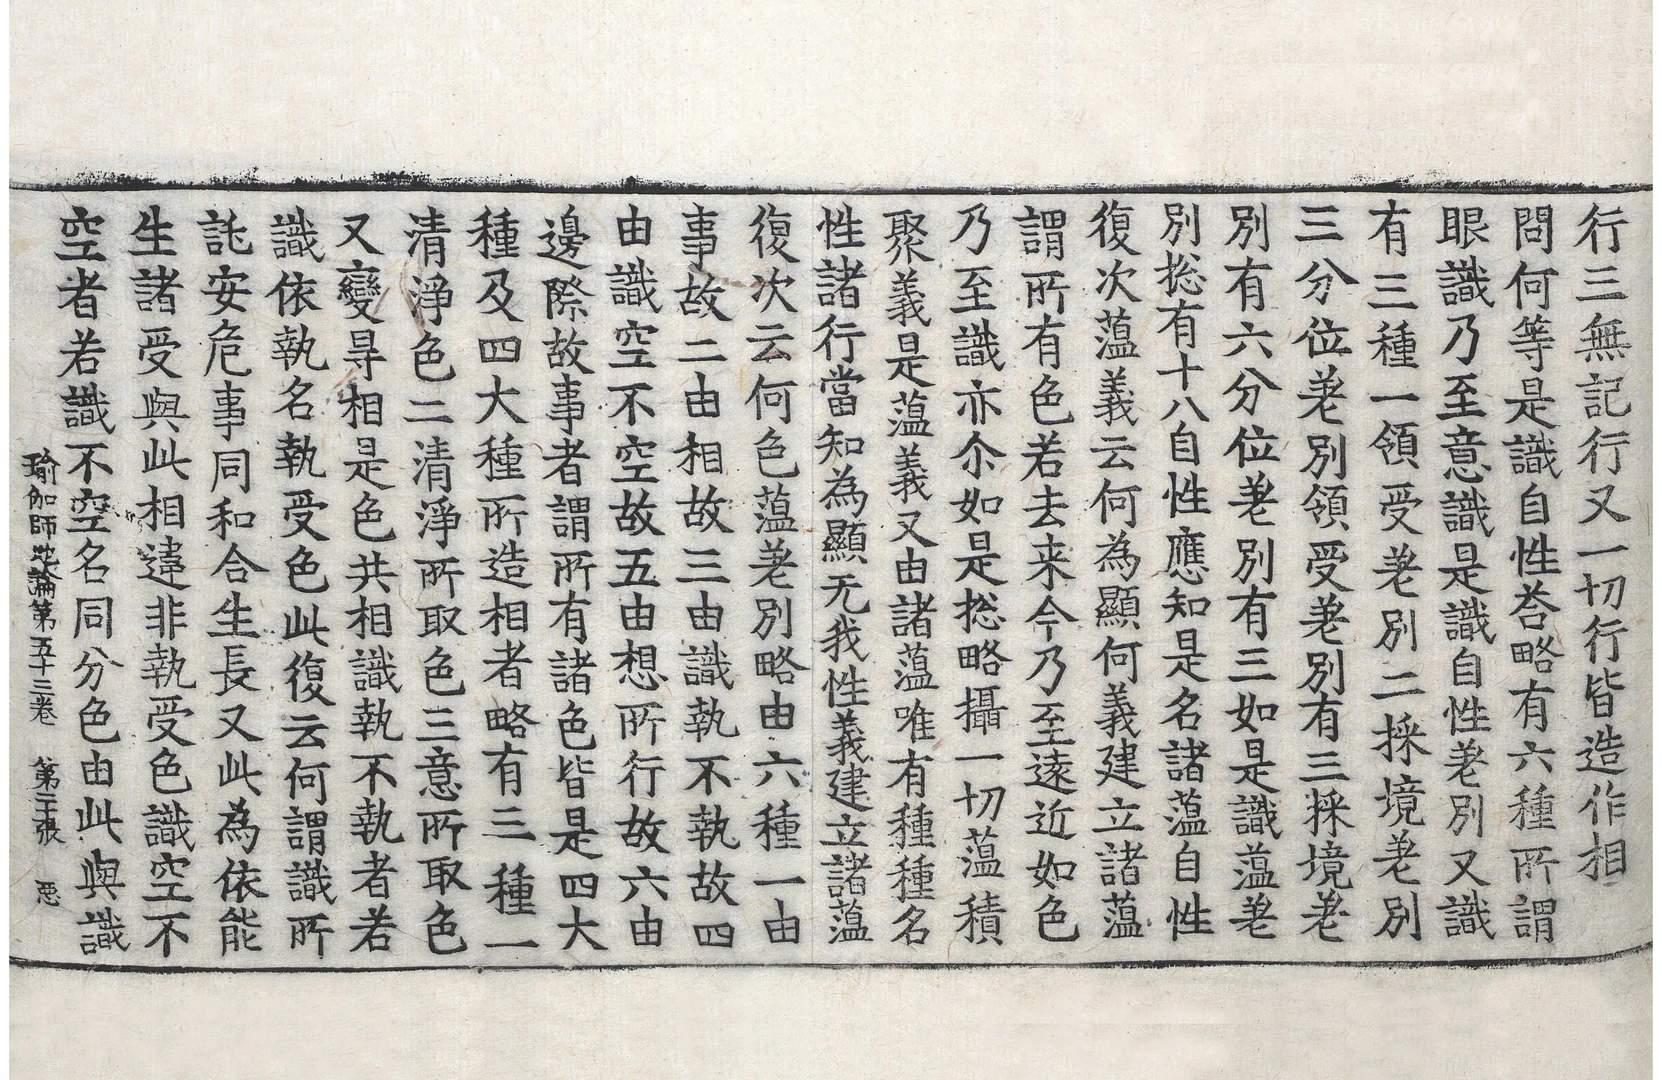 行三無記行又一切行皆造作相
問何等是識自性荅略有六種所謂
眼識乃至意識是識自性差別又識
有三種一領受差別二採境差別
三分位差別領受差別有三採境差
別有六分位差別有三如是識薀差
別捴有十八自性應知是名諸薀自性
復次薀義云何為顯何義建立諸薀
謂所有色若去来今乃至遠近如色
乃至識亦尒如是捴略攝一切薀積
聚義是薀義又由諸薀唯有種種名
性諸行當知為顯无我性義建立諸薀
復次云何色薀差別略由六種一由
事故二由相故三由識執不執故四
由識空不空故五由想所行故六由
邊際故事者謂所有諸色皆是四大
種及四大種所造相者略有三種一
清淨色二清淨所取色三意所取色
又變㝵相是色共相識執不執者若
識依執名執受色此復云何謂識所
託安危事同和合生長又此為依能
生諸受與此相違非執受色識空不
空者若識不空名同分色由此與識
瑜伽師地論第五十三卷 第二張 惡